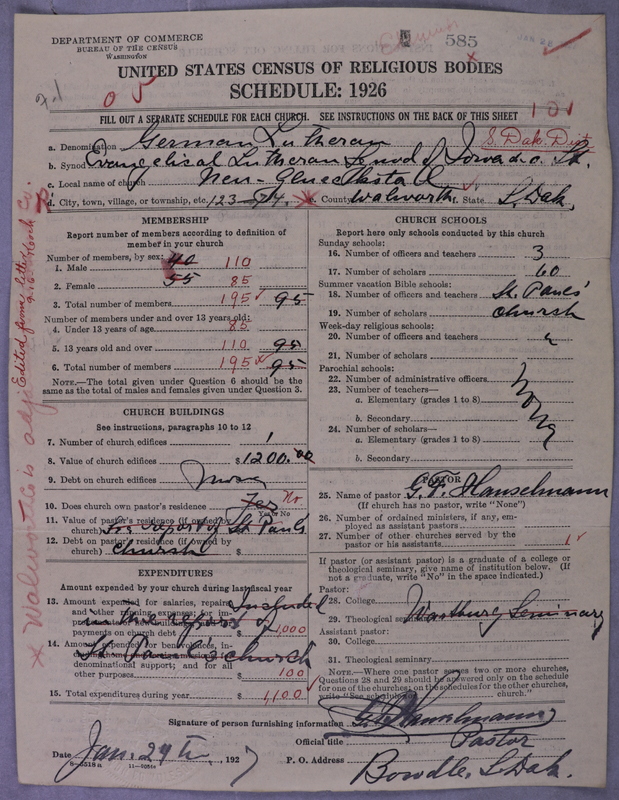 DEPARTMENT OF COMMERCE
BUREAU OF THE CENSUS
WASHINGTON
585
UNITED STATES CENSUS OF RELIGIOUS BODIES
SCHEDULE: 1926
FILL OUT A SEPARATE SCHEDULE FOR EACH CHURCH. SEE INSTRUCTIONS ON THE BACK OF THIS SHEET
a. Denomination German Lutheran
S. Dak. Dist
b. Synod Evangelical Lutheran Synod of Iowa & o. St.
c. Local name of church Neu-Glueckstal
d. City, town, village, or township, etc. 123-74 e. County Walworth f. State S. Dak.
MEMBERSHIP
Report number of members according to definition of member in your church
Number of members, by sex:
1. Male 40 110
2. Female 55 85
3. Total number of members 195 95
Number of members under and over 13 years old:
4. Under 13 years of age 85
5. 13 years old and over 110 95
6. Total number of members 195 95
NOTE.—The total given under Question 6 should be the same as the total of males and females given under Question 3.
CHURCH BUILDINGS
See instructions, paragraphs 10 to 12
7. Number of church edifices 1
8. Value of church edifices $ 1200.00
9. Debt on church edifices $ None
10. Does church own pastor's residence? Yes No
Yes or No
11. Value of pastor's residence (if owned by church) $ See report of St Pauls
12. Debt on pastor's residence (if owned by church) $ church
EXPENDITURES
Amount expended by your church during last fiscal year
13. Amount expended for salaries, repairs, and other running expenses; for improvements; payments on church debt $ 1,000
Included in the report of St Paul's church
14. Amount expended for benevolences, denominational support; and for all other purposes $ 100
15. Total expenditures during year $ 1,100
CHURCH SCHOOLS
Report here only schools conducted by this church
Sunday schools:
16. Number of officers and teachers 3
17. Number of scholars 60
Summer vacation Bible schools:
18. Number of officers and teachers St. Pauls'
19. Number of scholars church
Week-day religious schools:
20. Number of officers and teachers
21. Number of scholars
Parochial schools:
22. Number of administrative officers
23. Number of teachers—
a. Elementary (grades 1 to 8)
b. Secondary
24. Number of scholars—
a. Elementary (grades 1 to 8)
b. Secondary
None
PASTOR
25. Name of pastor G. F. Hanselmann
(If church has no pastor, write "None")
26. Number of ordained ministers, if any, employed as assistant pastors
27. Number of other churches served by the pastor or his assistants 1
If pastor (or assistant pastor) is a graduate of a college or theological seminary, give name of institution below. (If not a graduate, write "No" in the space indicated.)
Pastor:
28. College
29. Theological seminary Wartburg Seminary
Assistant pastor:
30. College
31. Theological seminary
NOTE.—Where one pastor serves two or more churches, Questions 28 and 29 should be answered only on the schedule for one of the churches; on the schedules for the other churches, write "See schedule for church."
Signature of person furnishing information G. F. Hanselmann
Official title Pastor
Date Jan. 29th, 1927
P. O. Address Bowdle, S. Dak.
8-5518 a
Edited from letter
* Walworth Co is adj.